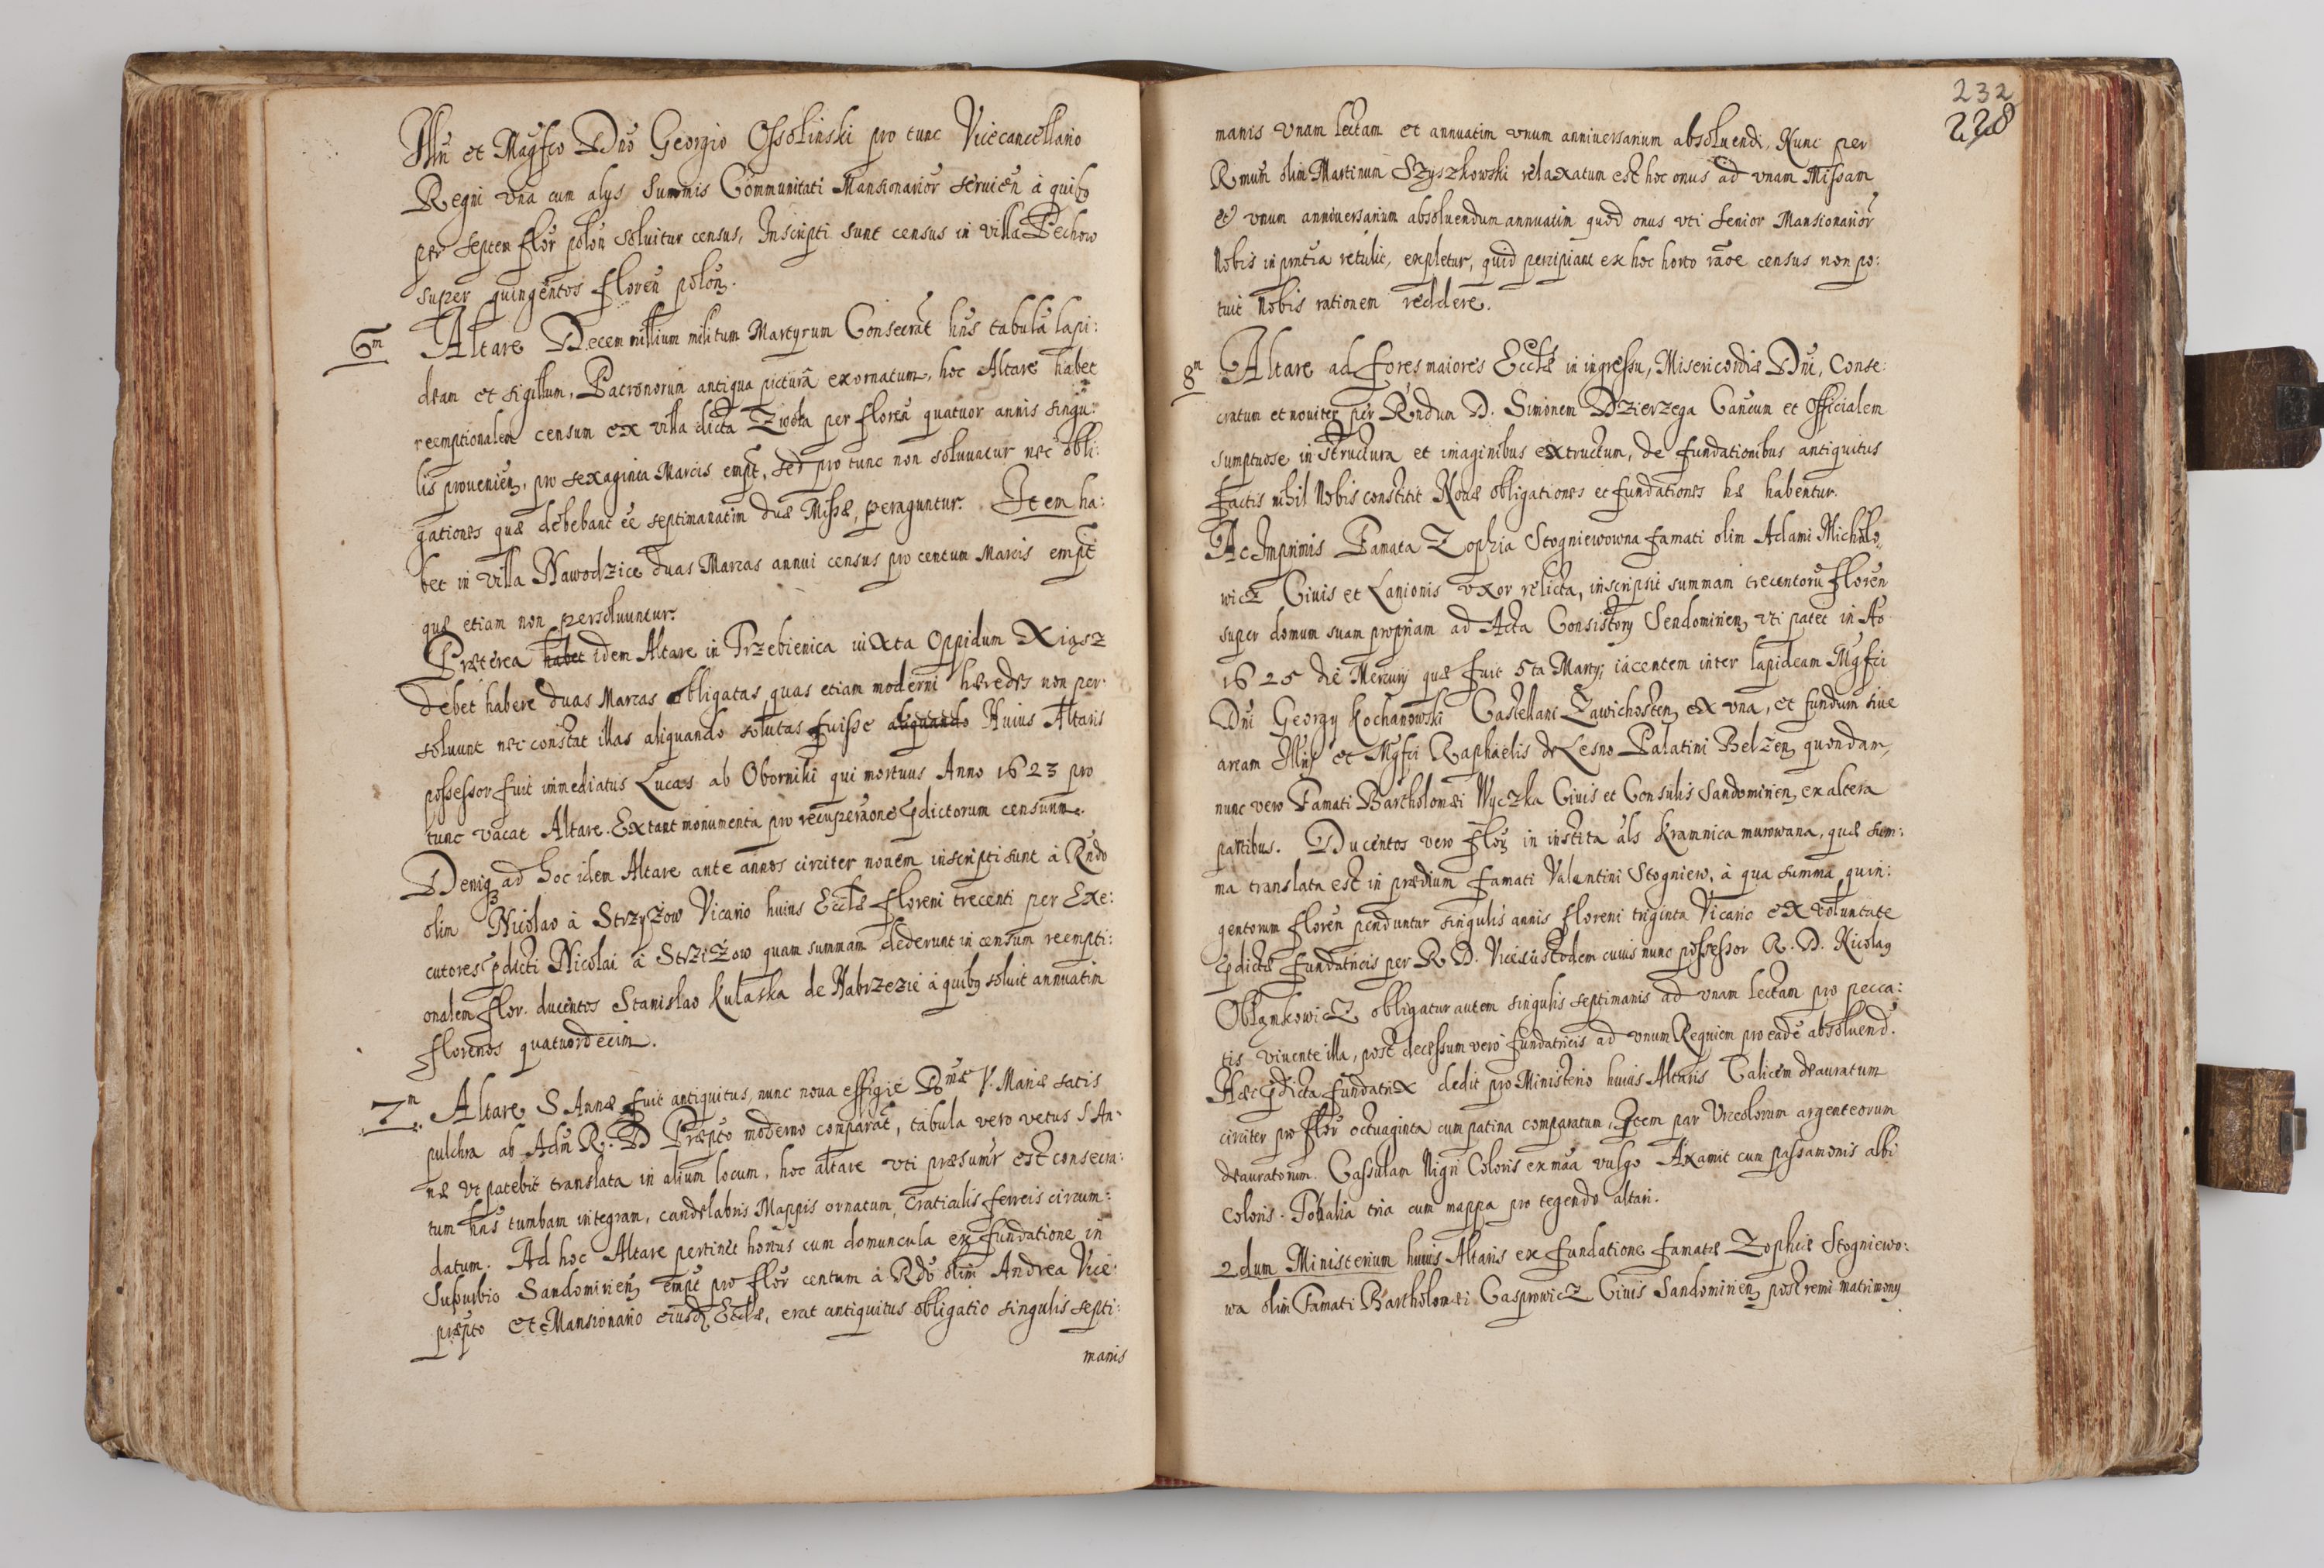 Illri et Magfco Dno Georgio Ossolinski pro tunc Vicecancellario
Regni vna cum alys Summis Communitati Mansionarior seruien à quibg
per septem flor polon soluitur census, Inscripti sunt census in villa Pechow
super quingentos floren polon.
6m Altare Decem millium militum Martyrum Consecrat hns tabula lapi:
deam et sigillum, Patronorum antiqua pictura exornatum, hoc Altare habet
reemptionalem censum ex villa dicta Zwola per floren quatuor annis singu:
lis prouenien, pro sexaginta Marcis empt, sed pro tunc non soluuntur nec obli:
gationes quæ debebant ee septimanatim duæ Missæ, peraguntur. Item ha:
bet in villa Nawodzice duas Marcas annui census pro centum Marcis empt
quæ etiam non persoluuntur.
Præterea habet idem Altare in Przebienica iuxta Oppidum Xiąsz
debet habere duas Marcas obligatas quas etiam moderni hæredes non per:
soluunt nec constat illas aliquando solutas fuisse aliquando Huius Altaris
possessor fuit immediatus Lucas ab Oborniki qui mortuus Anno 1623 pro
tunc vacat Altare. Extant monumenta pro recuperaone pdictorum censuum.
Deniq ad hoc idem Altare ante annos circiter nouem inscripti sunt à Rndo
olim Nicolao à Strzyżow Vicario huius Eccłæ floreni trecenti per Exe:
cutores pdicti Nicolai à Strziżow quam summam dederunt in censum reempti:
onalem flor. ducentos Stanislao Kułaska de Nabrzezie à quibg soluit annuatim
florenos quatuordecim.
7m Altare S Annæ fuit antiquitus, nunc noua effigie Bmæ V. Mariæ satis
pulchra ab Adm R. D Præpto moderno comparat, tabula vero vetus S An:
næ vt patebit translata in alium locum, hoc altare vti præsumr est consecra:
tum hns tumbam integram, candelabris Mappis ornatum, Craticulis ferreis circum:
datum. Ad hoc Altare pertinet hortus cum domuncula ex fundatione in
Suburbio Sandomirien empt pro flor centum à Rdo olim Andrea Vice:
præpto et Mansionario eiusd Eccłæ, erat antiquitus obligatio singulis septi:
manis
232
228
manis vnam lectam et annuatim vnum anniuersarium absoluendi, Nunc per
Rmum olim Martinum Szyszkowski relaxatum est hoc onus ad vnam Missam
et vnum anniuersarium absoluendum annuatim quod onus vti Senior Mansionarior
Nobis in pntia retulit, expletur, quid percipiant ex hoc horto raoe census non po:
tuit Nobis rationem reddere.
8m Altare ad fores maiores Eccłæ in ingressu, Misericordiæ Dni, Conse:
cratum et nouiter per Rndum D. Simonem Dzierzega Cancum et Officialem
sumptuose in structura et imaginibus extructum, de fundationibus antiquitus
factis nihil Nobis constitit Nouæ obligationes et fundationes hæ habentur.
Ac Imprimis Famata Zophia Stogniewowna famati olim Adami Michalo,,
wicz Ciuis et Lanionis vxor relicta, inscripsit summam trecentoru floren
super domum suam propriam ad Acta Consistory Sendomirien vti patet in Ao
1625 die Mercury quæ fuit 5ta Marty, iacentem inter lapideam Mgfci
Dni Georgy Kochanowski Castellani Zawichosten ex vna, et fundum siue
aream Illris et Mgfci Raphaelis de Lesno Palatini Belzen quondam,
nunc vero Famati Bartholomæi Wyczka Ciuis et Consulis Sandomirien ex altera
partibus. Ducentos vero flor in instita als Kramnica murowana, quæ sum:
ma translata est in prædium famati Valentini Stogniew, à qua summa quin:
gentorum floren penduntur singulis annis floreni triginta Vicario ex voluntate
pdictæ fundatricis per R D. Vicecustodem cuius nunc possessor R. D. Nicolag
Obłąmkowicz obligatur autem singulis septimanis ad vnam lectam pro pecca:
tis viuente illa, post decessum vero fundatricis ad vnum Requiem pro eade absoluend.
Hæc pdicta fundatrix dedit pro Ministerio huius Altaris Calicem deauratum
circiter pro flor octuaginta cum patina comparatum, Item par Vrceolorum argenteorum
deauratorum. Cassulam Nigri Coloris ex maa vulgo Axamit cum passamonis albi
Coloris. Tobalia tria cum mappa pro tegendo altari.
2dum Ministerium huius Altaris ex fundatione famatæ Zophiæ Stogniewo:
wa olim Famati Bartholomæi Gasprowicz Ciuis Sandomirien postremi matrimony